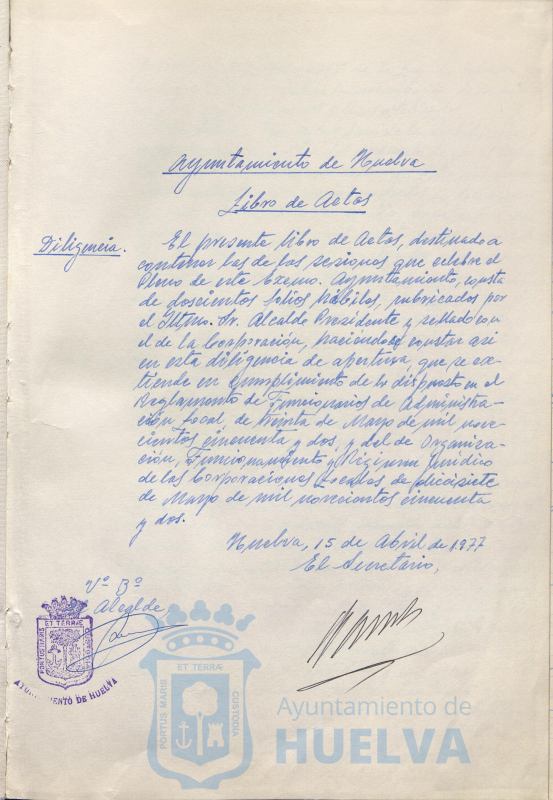 Ayuntamiento de Huelva
Libro de Actas
Diligencia.
El presente libro de Actas, destinado a
contener las de las sesiones que celebre el
Pleno de este Excmo. Ayuntamiento, consta
de doscientos folios hábiles, rubricados por
el Iltmo. Sr. Alcalde Presidente y sellado con
el de la Corporación, haciéndose constar así
en esta diligencia de apertura, que se ex-
tiende en cumplimiento de lo dispuesto en el
Reglamento de Funcionarios de Administra-
ción Local, de treinta de Mayo de mil nove-
cientos cincuenta y dos, y del de Organiza-
ción, Funcionamiento y Régimen Jurídico
de las Corporaciones Locales de diecisiete
de Mayo de mil novecientos cincuenta
y dos.
Huelva, 15 de Abril de 1977
El Secretario,
Vº Bº
Alcalde
PORTUS MARIS ET TERRÆ CUSTODIA
AYUNTAMIENTO DE HUELVA
PORTUS MARIS ET TERRÆ CUSTODIA
Ayuntamiento de
HUELVA